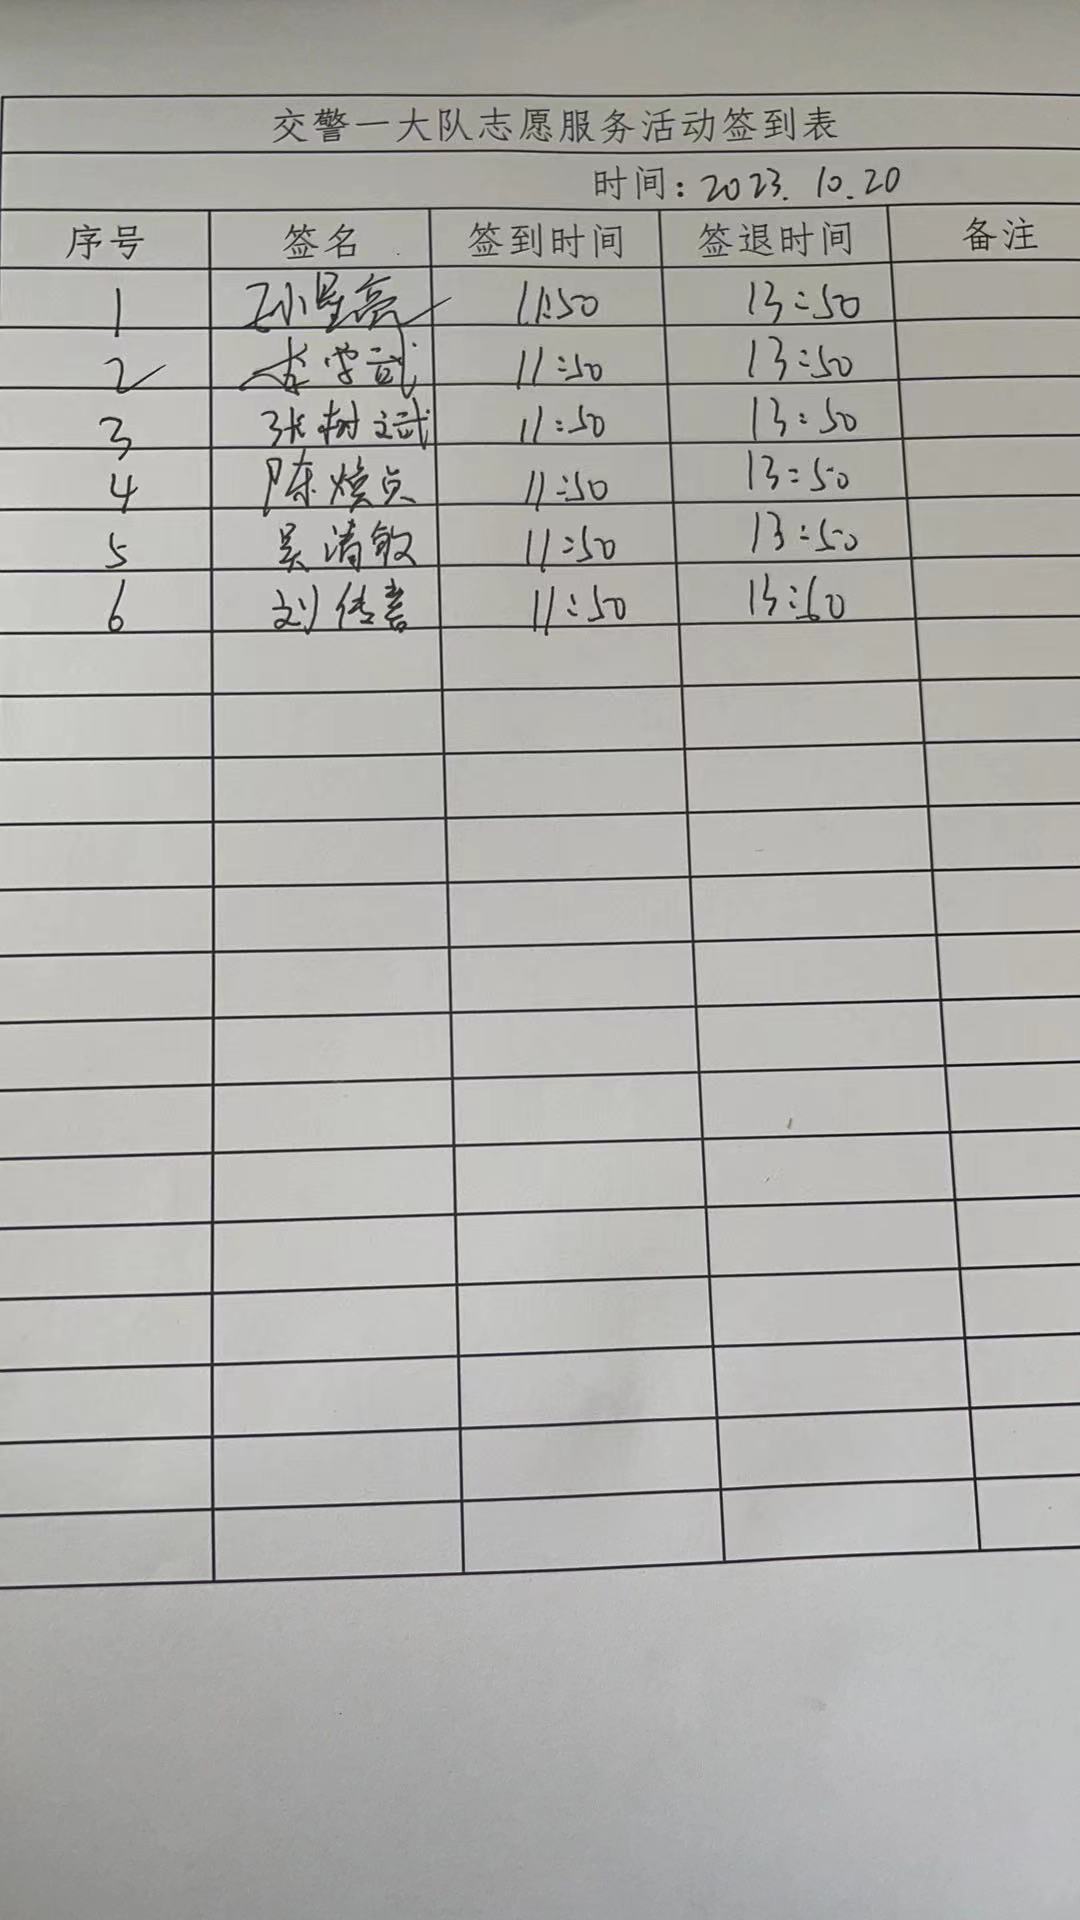 交警一大队志愿服务活动签到表
时间: 2023.10.20
序号 签名 签到时间 签退时间 备注
1 孙星亮 11:50 13:50
2 李学武 11:50 13:50
3 张树斌 11:50 13:50
4 陈焕贞 11:50 13:50
5 吴清敏 11:50 13:50
6 刘传喜 11:50 13:50